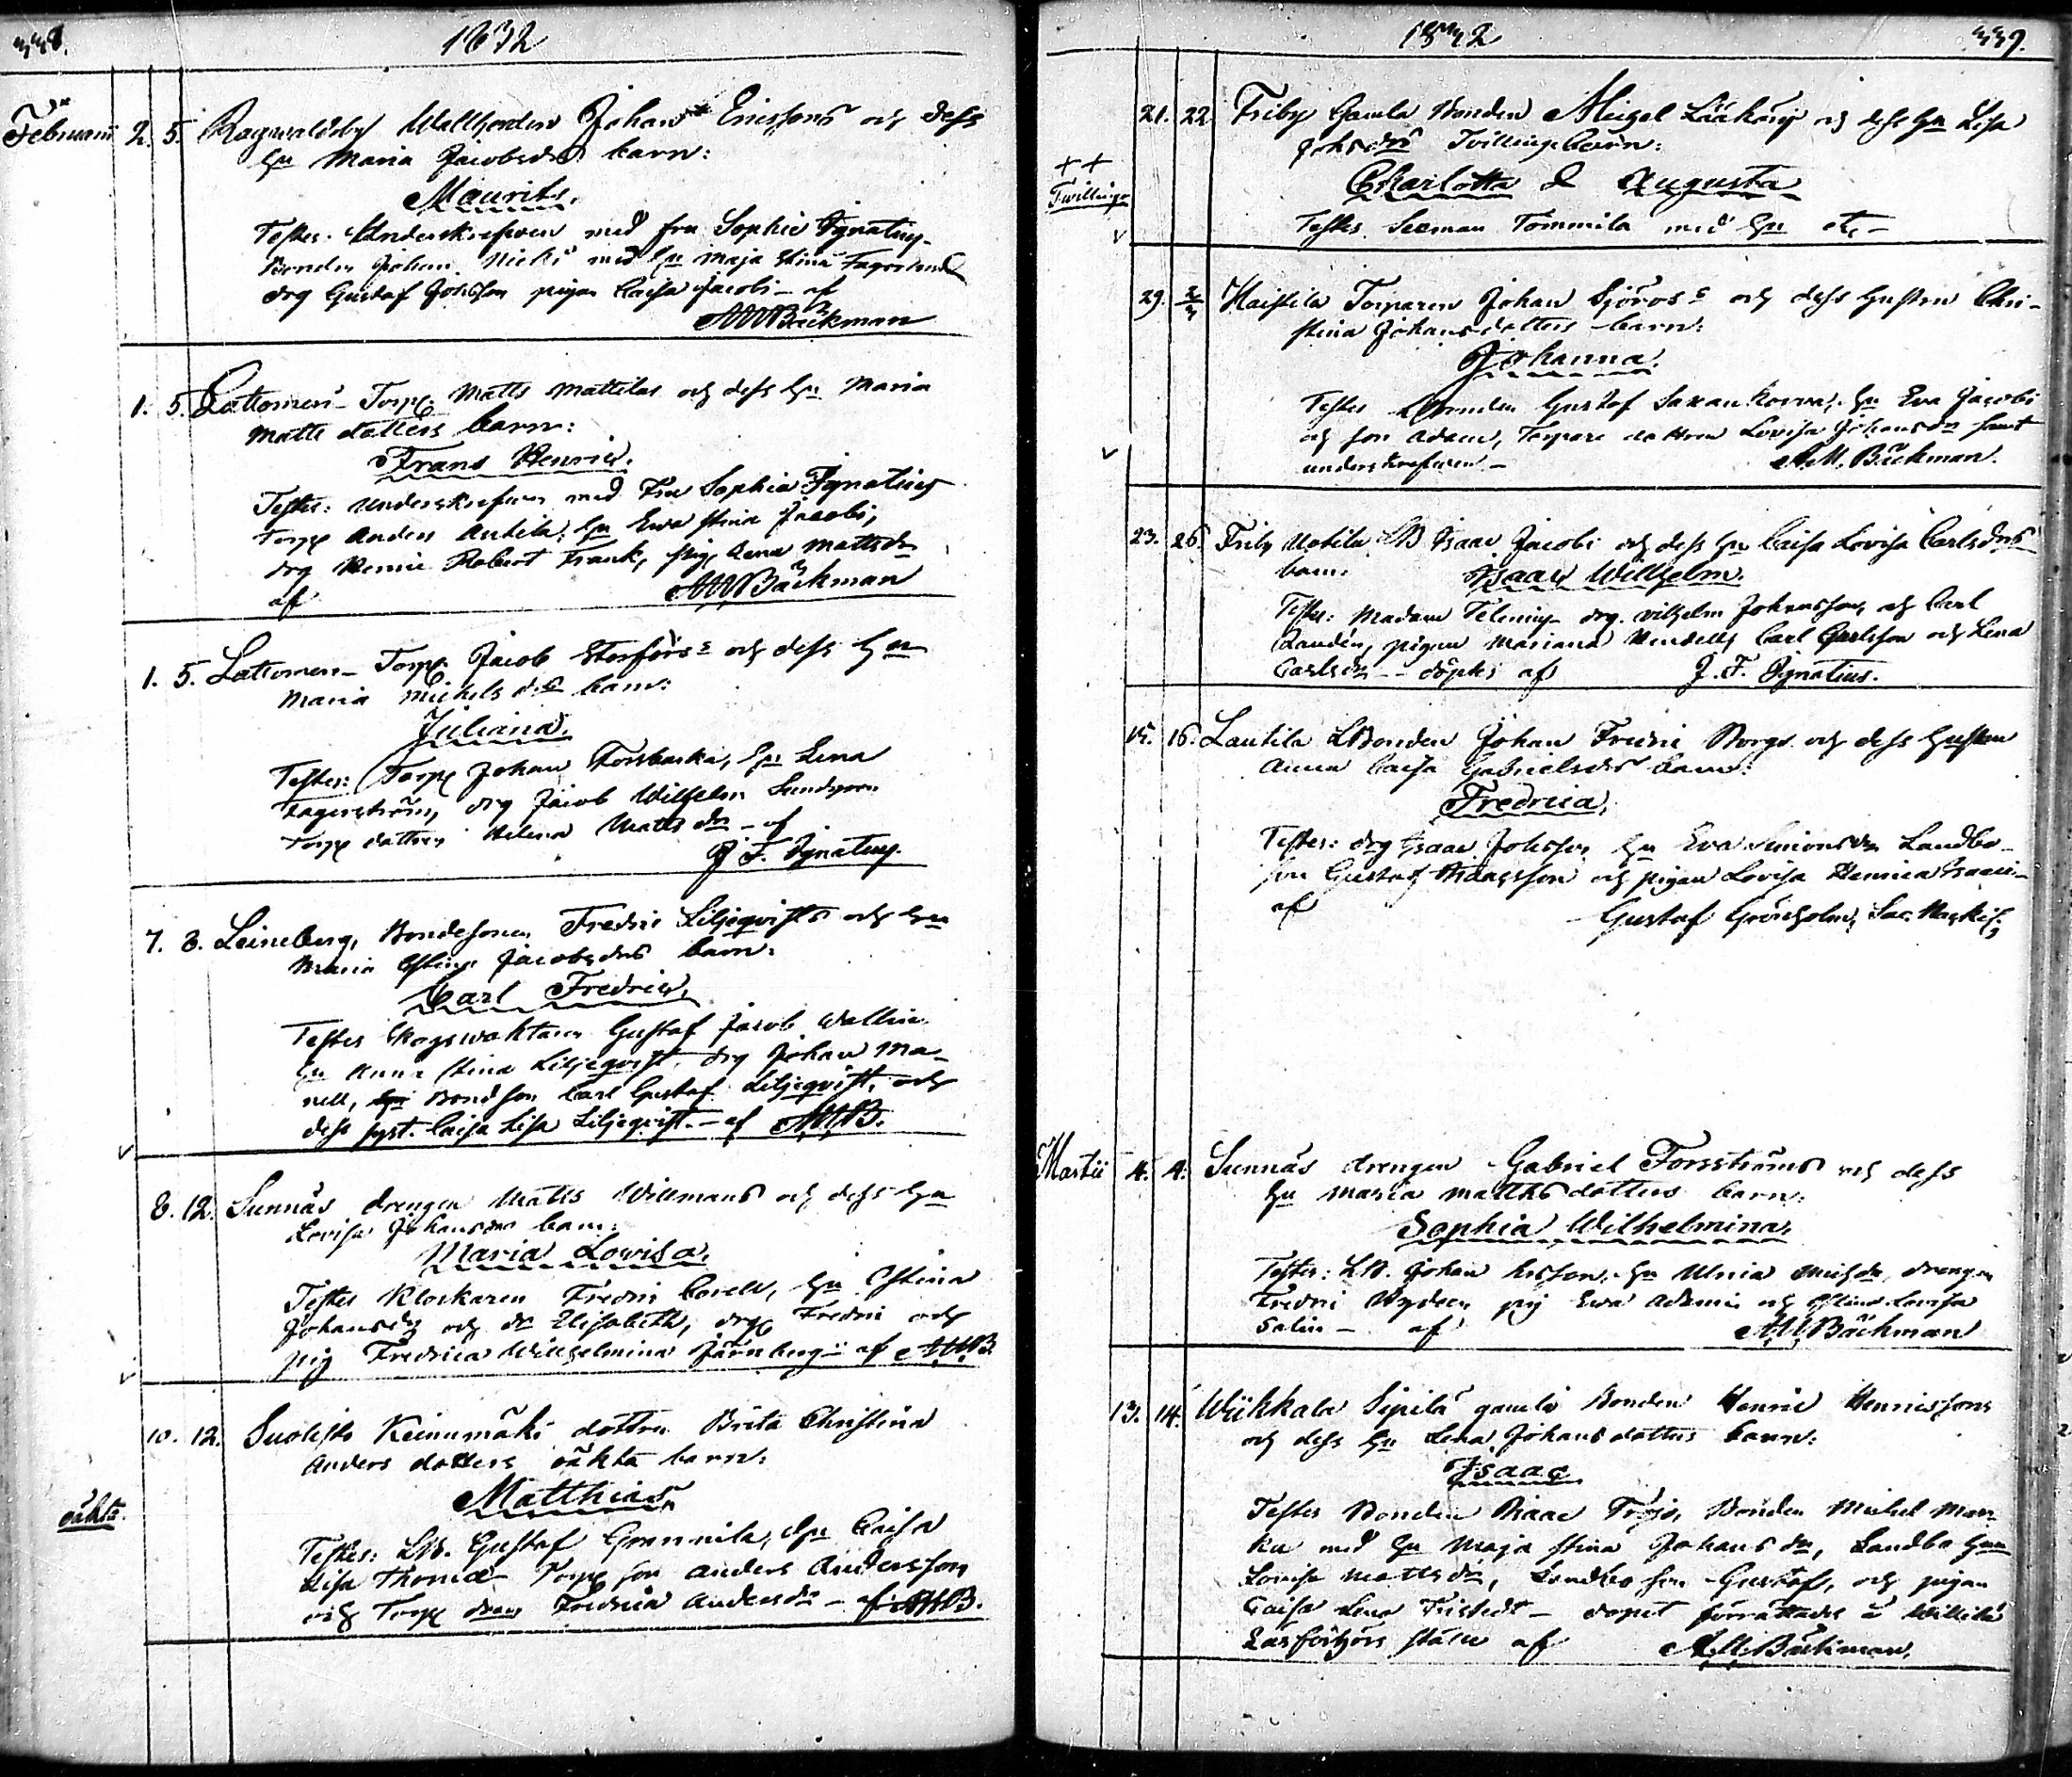 338.
1832
Februarii 2. 5. Ragwaldsby Wallherden Johan Ericssons och dess
hu Maria Jacobsdrs barn:
Maurits.
Testes: Underskrefwen med fru Sophie Ignatius
Bonden Johan Nicki med hu Maja Stina Fagerlund
drg Gustaf Johsson pigan Caisa Jacobi - af
AMBäckman
1. 5. Lattomeri Torp. Matts Mattilas och dess hu Maria
Matts dotters barn:
Frans Henric.
Testes: Underskrefwen med Fru Sophia Ignatius
Torp Anders Antila, hu Ewa Stina Jacobi,
drg Henric Robert Frank, pig Lena Mattsdr
af AMBäckman
1. 5. Lattomeri Torp. Jacob Storfors och dess hu
Maria Michelsdrs barn:
Juliana.
Testes: Torp Johan Forsbacka, hu Lena
Lagerström, drg Jacob Wilhelm
Torp dottren Helena Mattsdr - af
J. F. Ignatius.
7. 8. Leineberg, Bondesonen Fredric Liljeqvists och hu
Maria Stina Jacobsdrs barn:
Carl Fredric.
Testes Skogswaktaren Gustaf Jacob Wallin
hu Anna Stina Liljeqvist, drg Johan Ma-
nell, Bondson Carl Gustaf Liljeqvist, och
dess syst. Caisa Lisa Liljeqvist - af AMB.
8. 12. Sunnäs drengen Matts Willmans och dess hu
Lovisa Johansdrs barn:
Maria Lovisa.
Testes Klockaren Fredric Corell, hu Stina
Johansdr och dr Elisabeth, drg Fredric och
pig Fredrica Wilhelmina Järnberg - af AMB.
10. 12. Suolisto Keinumäki dottren Brita Christina
Anders dotters oäkta barn:
Matthias.
oäkta.
Testes: LB. Gustaf Grannila, hu Caisa
Lisa Thomæ Torp son Anders Andersson
och Torp Fredrica Andersdr - af AMB.
1832
339.
21. 22. Friby Gamla Bonden Michel Lääkäris och dess hu Lisa
Johsdrs Tvillingebarn:
++
Twillingar
Charlotta & Augusta
Testes Sexman Tommila med hu etc -
29. 2/3 Haistila Torparen Johan Sjöros och dess hustru Chri-
stina Johansdotters barn:
Johanna.
Testes Bonden Gustaf Saxankorva, hu Eva Jacobi
och son Adam, Torpare dottren Lovisa Johansdr samt
underskrefwen - A.M. Bäckman.
23. 26. Friby Uotila LB Isaac Jacobi och dess hu Caisa Lovisa Carlsdrs
barn: Isaac Wilhelm.
Testes: Madam Fleming drg. Wilhelm Johansson, och Carl
Randén, pigan Mariana Wendell, Carl Carlsson och Lena
Carlsdr - döptes af J. F. Ignatius.
15. 16. Lautila LBonden Johan Fredric Borgs och dess hustru
Anna Caisa Gabrielsdrs barn:
Fredrica.
Testes: drg Isaac Johsson, hu Eva Simonsdr Landbo-
son Gustaf Isaacsson och pigan Lovisa Henrica Isaaci
af Gustaf Grönholm,
Martii 4. 4. Sunnäs drengen Gabriel Forsströms och dess
hu Maria Matthsdotters barn:
Sophia Wilhelmina.
Testes: LB. Johan hu Ulrica drengen
Fredric Nyden pig Ewa Adami och Stina Lovisa
Salin - af AMBäckman
13. 14. Wiikkala Sipilä gamla Bonden Henric Henricssons
och dess hu Lena Johansdotters barn:
Isaac
Testes Bonden Isaac Bonden Michel Mar-
ku med hu Maja Stina Johansdr, Landbo hu
Lovisa Mattsdr, Landbo son Gustaf, och pigan
Caisa Lena Fristedt - dopet förrättades å Willilä
Läsförhörs ställe af A.M. Bäckman.